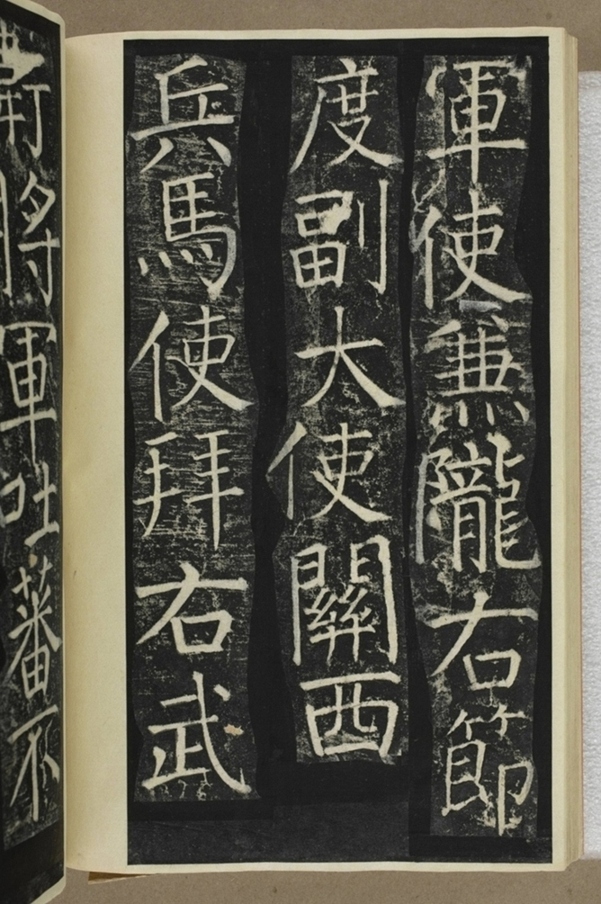 軍使兼隴右節
度副大使關西
兵馬使拜右武
將軍吐蕃不